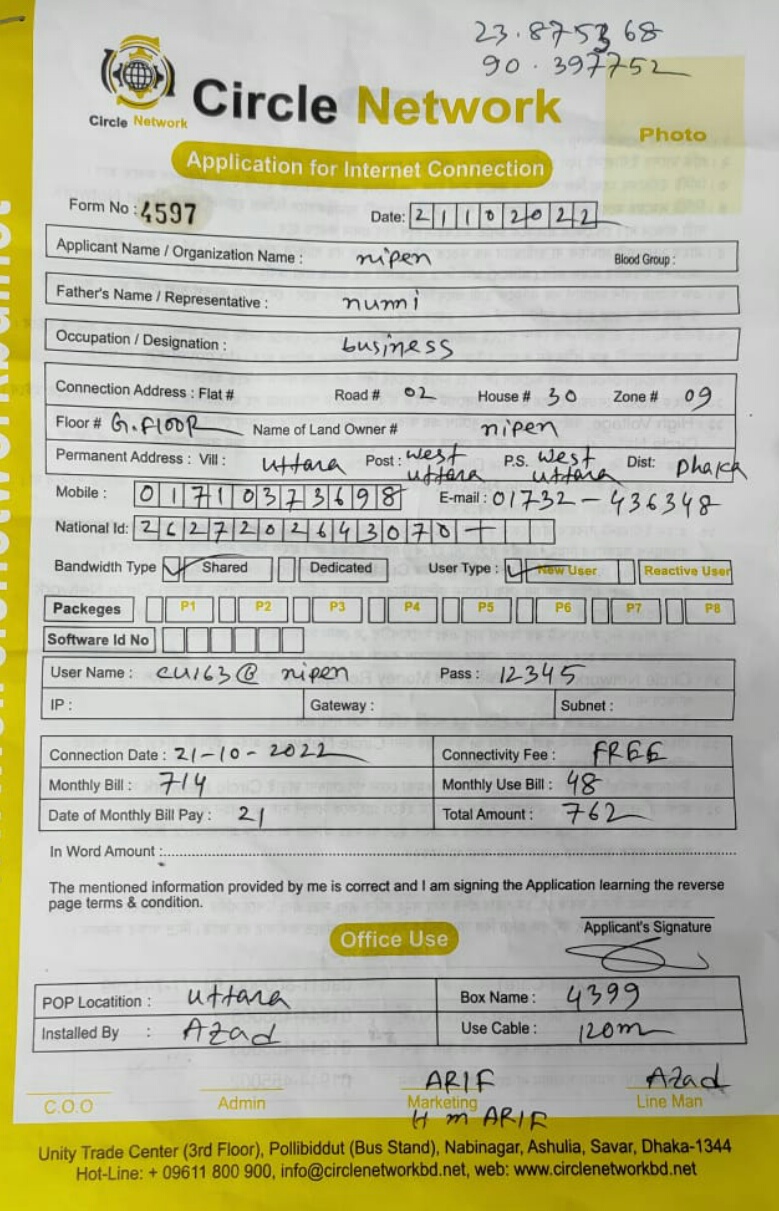 23.875368
90.397752
Circle Network
Circle Network
Photo
Application for Internet Connection
Form No : 4597
Date: 21102022
Applicant Name / Organization Name : nipen Blood Group :
Father's Name / Representative : nunni
Occupation / Designation : business
Connection Address : Flat # Road # 02 House # 30 Zone # 09
Floor # G.FlooR Name of Land Owner # nipen
Permanent Address : Vill : uttara Post : west uttara P.S. west uttara Dist: Dhaka
Mobile : 01710373698 E-mail : 01732-436348
National Id: 2627202643070
Bandwidth Type Shared Dedicated User Type : New User Reactive User
Packeges P1 P2 P3 P4 P5 P6 P7 P8
Software Id No
User Name : cu163@nipen Pass : 12345
IP : Gateway : Subnet :
Connection Date : 21-10-2022 Connectivity Fee : FREE
Monthly Bill : 714 Monthly Use Bill : 48
Date of Monthly Bill Pay : 21 Total Amount : 762
In Word Amount :
The mentioned information provided by me is correct and I am signing the Application learning the reverse
page terms & condition.
Applicant's Signature
Office Use
POP Locatition : uttara Box Name : 4399
Installed By : Azad Use Cable : 120m
ARIF Azad
C.O.O Admin Marketing Line Man
H m ARIF
Unity Trade Center (3rd Floor), Pollibiddut (Bus Stand), Nabinagar, Ashulia, Savar, Dhaka-1344
Hot-Line: + 09611 800 900, info@circlenetworkbd.net, web: www.circlenetworkbd.net